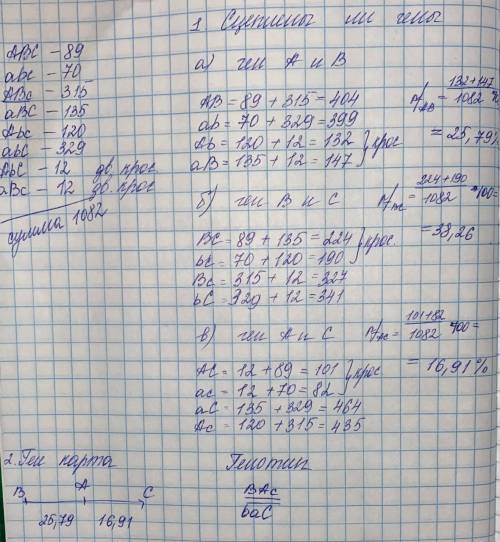 ABC - 89
abc - 70
ABc - 315
aBC - 135
Abc - 120
abC - 329
AbC - 12 дв. крос
aBc - 12 дв. крос
сумма 1082
1. Сцеплены ли гены
а) ген A и B
AB = 89 + 315 = 404
ab = 70 + 329 = 399
Ab = 120 + 12 = 132 } крос
aB = 135 + 12 = 147
AB = 132+147 / 1082
= 25,79%
б) ген B и C
BC = 89 + 135 = 224 } крос.
bc = 70 + 120 = 190
Bc = 315 + 12 = 327
bC = 329 + 12 = 341
224+190 / 1082 *100 =
= 38,26
в) ген A и C
AC = 12 + 89 = 101 } крос
ac = 12 + 70 = 82
aC = 135 + 329 = 464
Ac = 120 + 315 = 435
AC = 101+82 / 1082 *100 =
= 16,91%
2. Ген карта
B A C
25,79 16,91
Генотип
BAc
baC